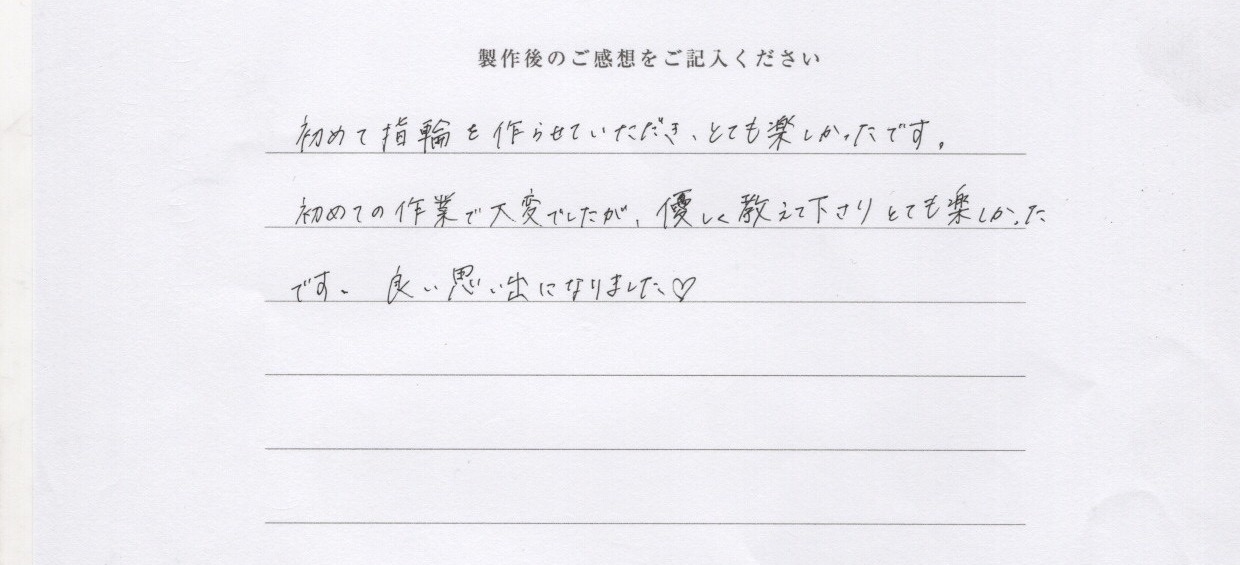 製作後のご感想をご記入ください
初めて指輪を作らせていただき、とても楽しかったです。
初めての作業で大変でしたが、優しく教えて下さりとても楽しかった
です。良い思い出になりました♡